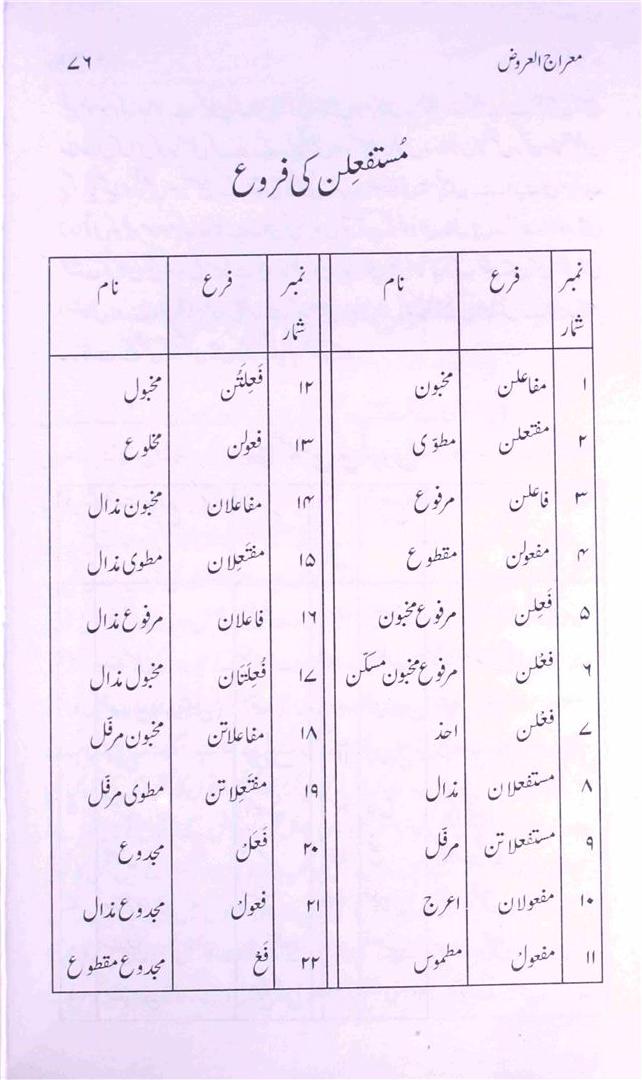 معراج العروض ۷۶
مُستفعِلن کی فروع
نمبر شمار فرع نام نمبر شمار فرع نام
۱ مفاعلن مخبون ۱۲ فَعِلَتُن مخبول
۲ مفتعلن مطوّی ۱۳ فعولن مخلوع
۳ فاعلن مرفوع ۱۴ مفاعلان مخبون مذال
۴ مفعولن مقطوع ۱۵ مفتَعِلان مطوی مذال
۵ فَعِلن مرفوع مخبون ۱۶ فاعلان مرفوع مذال
۶ فعْلن مرفوع مخبون مسکّن ۱۷ فَعِلَتَان مخبول مذال
۷ فعْلن احذ ۱۸ مفاعلاتن مخبون مرفّل
۸ مستفعلان مذال ۱۹ مفتَعِلاتن مطوی مرفّل
۹ مستفعلاتن مرفّل ۲۰ فَعَل مجدوع
۱۰ مفعولان اعرج ۲۱ فعول مجدوع مذال
۱۱ مفعول مطموس ۲۲ فَع مجدوع مقطوع